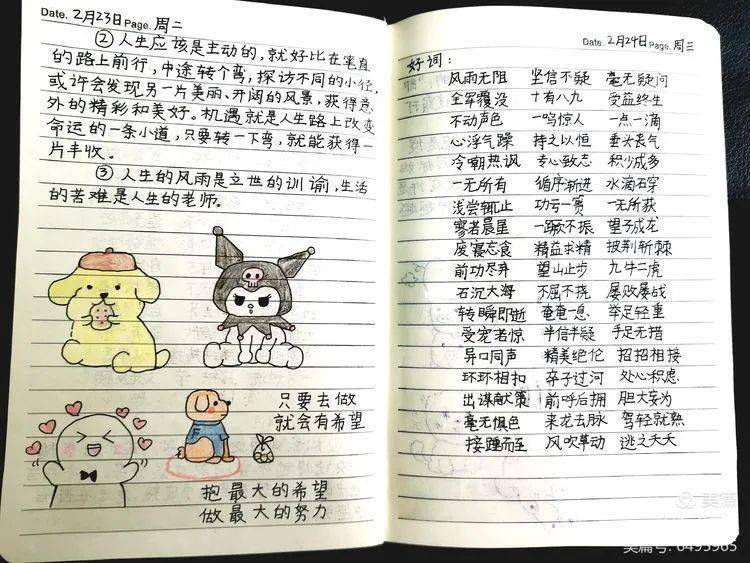 Date. 2月23日 Page. 周二
② 人生应该是主动的,就好比在笔直
的路上前行,中途转个弯,探访不同的小径,
或许会发现另一片美丽、开阔的风景,获得意
外的精彩和美好。机遇就是人生路上改变
命运的一条小道,只要转一下弯,就能获得一
片丰收。
③ 人生的风雨是立世的训谕,生活
的苦难是人生的老师。
只要去做
就会有希望
抱最大的希望
做最大的努力
Date. 2月24日 Page. 周三
好词:
风雨无阻 坚信不疑 毫无疑问
全军覆没 十有八九 受益终生
不动声色 一鸣惊人 一点一滴
心浮气躁 持之以恒 垂头丧气
冷嘲热讽 专心致志 积少成多
一无所有 循序渐进 水滴石穿
浅尝辄止 功亏一篑 一无所获
寥若晨星 一蹶不振 望子成龙
废寝忘食 精益求精 披荆斩棘
前功尽弃 望山止步 九牛二虎
石沉大海 不屈不挠 屡败屡战
转瞬即逝 奄奄一息 举足轻重
受宠若惊 半信半疑 手足无措
异口同声 精美绝伦 招招相接
环环相扣 卒子过河 处心积虑
出谋献策 前呼后拥 胆大妄为
毫无惧色 来龙去脉 驾轻就熟
接踵而至 风吹草动 逃之夭夭
美篇
美篇号: 6495965